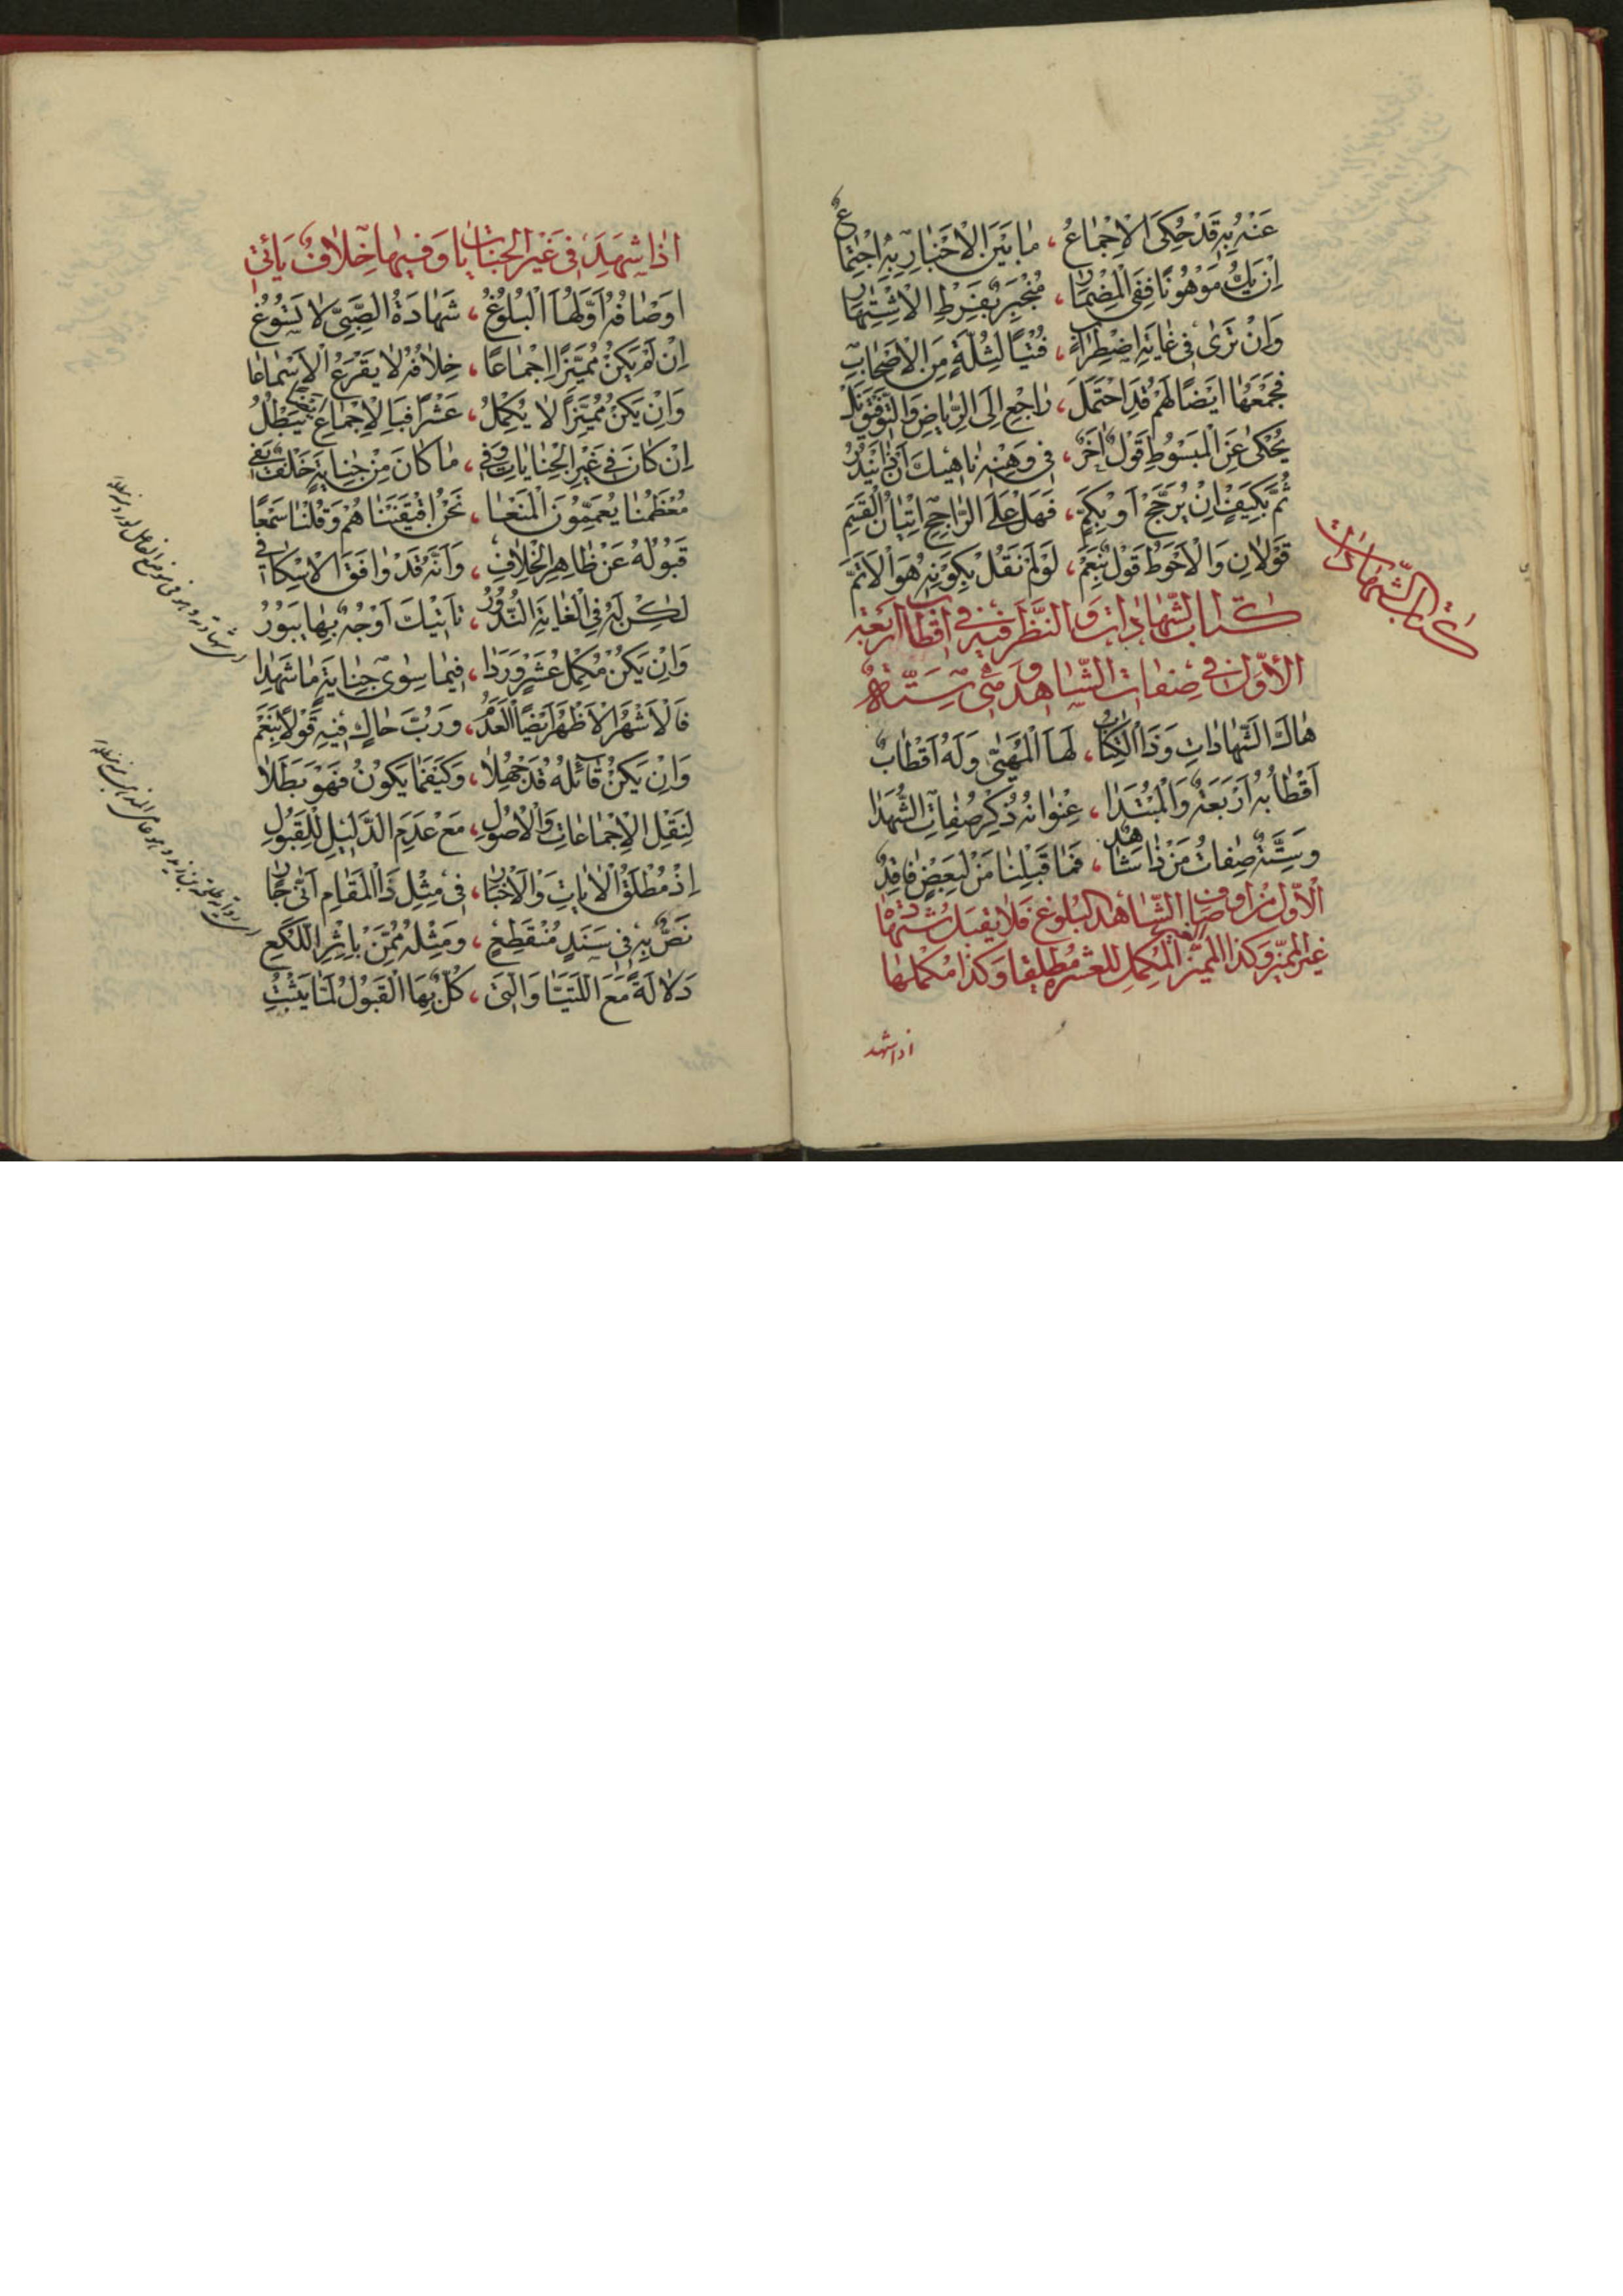 عَنْهُ بِهِ قَدْ حُكِيَ الْإِجْمَاعُ ، مَا بَيْنَ الْأَخْبَارِ بِهِ اجْتِمَاعٌ
إِنْ يَكُ مَوْهُونًا فَفِي الْمِضْمَارِ ، مُنْجَبِرٌ بِفَرْطِ الْاِشْتِهَارِ
وَإِنْ تَرَى فِي غَايَةِ اضْطِرَابٍ ، فُتْيًا لِثُلَّةٍ مِنَ الْأَصْحَابِ
فَجَمْعُهَا أَيْضًا لَهُمْ قَدِ احْتَمَلَ ، رَاجِعْ إِلَى الرِّيَاضِ وَالتَّوْفِيقَ
يُحْكَى عَنِ الْمَبْسُوطِ قَوْلٌ آخَرُ ، فِي وَهْنِهِ نَاهِيكَ أَنْ يَنْدُرُ
ثُمَّ بِكَيْفٍ إِنْ يُرَجَّحْ أَوْ بِكَمٍّ ، فَهَلْ عَلَى الرَّاجِحِ إِتْيَانُ الْقَسَمِ
قَوْلَانِ وَالْأَحْوَطُ قَوْلُ نَعَمْ ، لَوْ لَمْ نَقُلْ بِكَوْنِهِ هُوَ الْأَتَمُّ
كتاب الشهادات
كتاب الشهادات والنظر فيه في أقطاب أربعة
الأول في صفات الشاهد وهي ستة
هَاكَ الشَّهَادَاتِ وَذَا الْكِتَابُ ، لَهَا الْمُهَيَّى وَلَهُ أَقْطَابُ
أَقْطَابُهُ أَرْبَعَةٌ وَالْمُبْتَدَا ، عِنْوَانُهُ ذِكْرُ صِفَاتِ الشُّهَدَا
وَسِتَّةٌ صِفَاتُ مَنْ ذَا شَاهِدٌ ، فَمَا قَبِلْنَا مَنْ لِبَعْضٍ فَاقِدٌ
الأول من أوصاف الشاهد البلوغ فلا يقبل شهادة
غير المميز وكذا المميز الغير المكمل للعشر مطلقا وكذا مكملها
اذا شهد
اذا شهد في غير الجنايات وفيها خلاف يأتي
أَوْصَافُهُ أَوَّلُهَا الْبُلُوغُ ، شَهَادَةُ الصَّبِيِّ لَا تَسُوغُ
إِنْ لَمْ يَكُنْ مُمَيِّزًا إِجْمَاعًا ، خِلَافُهُ لَا يَقْرَعُ الْأَسْمَاعَا
وَإِنْ يَكُنْ مُمَيِّزًا لَا يُكْمِلُ ، عَشْرًا فَبِالْإِجْمَاعِ يَبْطُلُ
إِنْ كَانَ فِي غَيْرِ الْجِنَايَاتِ وَفِي ، مَا كَانَ مِنْ جِنَايَةٍ خُلْفٌ يَفِي
مُعْظَمُنَا يُعَمِّمُونَ الْمَنْعَا ، نَحْنُ اقْتَفَيْنَا هُمْ وَقُلْنَا سَمْعًا
قَبُولُهُ عَنْ ظَاهِرِ الْخِلَافِ ، وَأَنَّهُ قَدْ وَافَقَ الْإِسْكَافِي
لَكِنَّهُ فِي الْغَايَةِ النُّدُورُ ، تَأْتِيكَ أَوْجُهٌ بِهَا يَبُورُ
وَإِنْ يَكُنْ مُكْمِلَ عَشْرٍ وَرَدَا ، فِيمَا سِوَى جِنَايَةٍ مَا شَهِدَا
فَالْأَشْهَرُ الْأَظْهَرُ أَيْضًا الْعَدَمُ ، وَرُبَّ حَاكٍ فِيهِ قَوْلًا بِنَعَمْ
وَإِنْ يَكُنْ قَائِلُهُ قَدْ جُهِلَا ، وَكَيْفَمَا يَكُونُ فَهْوَ بَطَلَا
لِنَقْلِ الْإِجْمَاعَاتِ وَالْأُصُولِ ، مَعْ عَدَمِ الدَّلِيلِ لِلْقَبُولِ
إِذْ مُطْلَقُ الْآيَاتِ وَالْأَخْبَارِ ، فِي مِثْلِ ذَا الْمَقَامِ أَنَّى جَارٍ
نَصٌّ بِهِ فِي سَنَدٍ مُنْقَطِعٍ ، وَمِثْلُهُ مُمَنٌّ بِإِثْرِ اللُّكَعِ
دَلَالَةً مَعَ اللَّتَيَّا وَالَّتِي ، كُلٌّ بِهَا الْقَبُولُ لَمَّا يَثْبُتِ